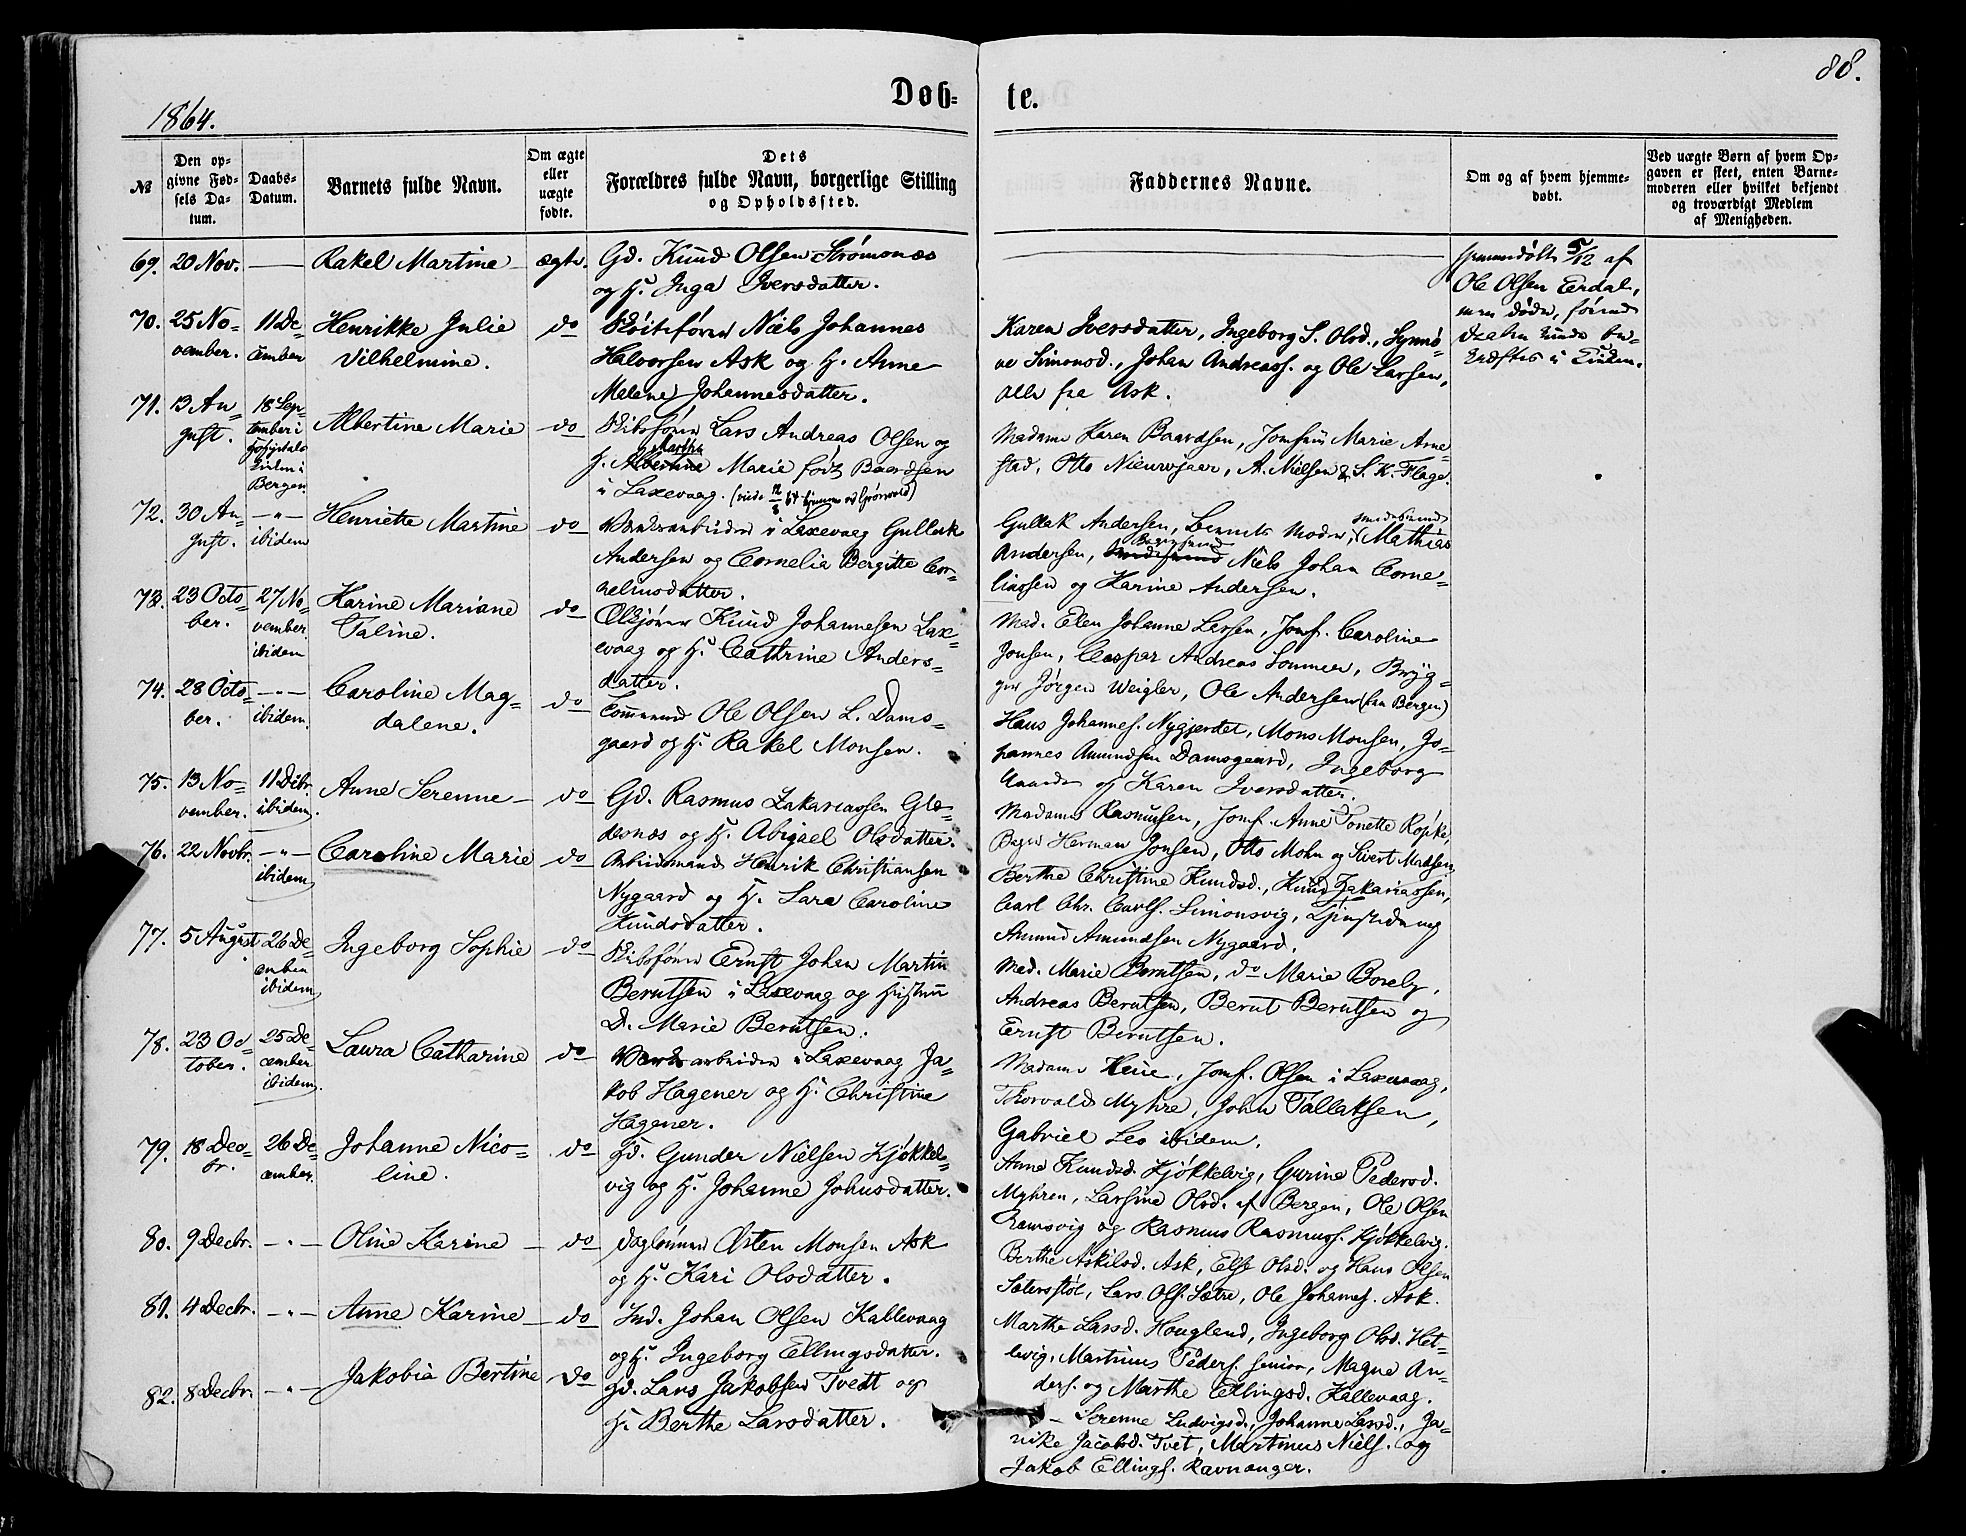 88.
Døb-
te.
1864.
№
Den op-
givne Fød-
sels Da-
tum.
Daabs-
Datum.
Barnets fulde Navn.
Om ægte
eller
uægte
fødte.
Dets
Forældres fulde Navn, borgerlige Stilling
og Opholdssted.
Faddernes Navne.
Om og af hvem hjemme-
døbt.
Ved uægte Børn af hvem Op-
gaven er skeet, enten Barne-
moderen eller hvilket bekjendt
og troværdigt Medlem
af Menigheden.
69. 20 Nov. — Rakel Martine ægte.
Gd. Knud Olsen Strømsnæs
og H. Inga Iversdatter.
Hjemmedøbt 5/12 af
Ole Olsen Erdal,
men døde, førend
Daaben kunde be-
kræftes i Kirken.
70. 25 No-
vember.
11 De-
cember
Henrikke Julie
Vilhelmine.
do
Skibsfører Niels Johannes
Halvorsen Ask og H. Anne
Melene Johannesdatter.
Karen Iversdatter, Ingeborg S. Olsd., Synnø-
ve Simonsd., Johan Andreass. og Ole Larsen,
alle fra Ask.
71. 13 Au-
gust.
18 Sep-
tember i
Hospitals
Kirken i
Bergen.
Albertine Marie
do
Skibsfører Lars Andreas Olsen og
Martha
H. Albertine Marie født Baardsen
i Laxevaag.
Madame Karen Baardsen, Jomfru Marie Arne-
stad, Otto Nieuwejaar, A. Nielsen & S. K. Flage.
72. 30 Au-
gust.
— „ —
ibidem
Henriette Martine
do
Værksarbeider i Laxevaag Gullak
Andersen og Cornelia Bergitte Cor-
neliusdatter.
Gullak Andersen, Barnets Moder, Mathias
Andersen, Niels Johan Corne-
liussen og Karine Andersen.
73. 23 Octo-
ber.
27 No-
vember
ibidem
Karine Mariane
Taline.
do
Knud Johannesen Lax-
evaag og H. Cathrine Anders-
datter.
Mad. Elen Johanne Larsen, Jomf. Caroline
Jonsen, Caspar Andreas Sommer, Bryg-
ger Jørgen Weigler, Ole Andersen (fra Bergen)
74. 28 Octo-
ber.
— „ —
ibidem.
Caroline Mag-
dalene.
do
Ole Olsen L. Dams-
gaard og H. Rakel Monsen.
Hans Johannes. Nygjerdet, Mons Monsen, Jo-
hannes Amundsen Damsgaard, Ingeborg
og Karen Iversdatter.
75. 13 No-
vember.
11 Decbr.
ibidem.
Anne Serenne
do
Gd. Rasmus Zakariassen Gle-
desnæs og H. Abigael Olsdatter.
Madame Rasmusen, Jomf. Anne Tonette Røpke,
Bager Herman Jonsen, Otto Mohn og Sivert Madsen
76. 22 Novbr.
— „ —
ibidem
Caroline Marie
do
Arbeidsmand Henrik Christiansen
Nygaard og H. Sara Caroline
Knudsdatter.
Berthe Christine Knudsd., Knud Zakariassen,
Carl Chr. Carls. Simonsvig,
Amund Amundsen Nygaard.
77. 5 August
26 De-
cember
ibidem
Ingeborg Sophie
do
Skibsfører Ernst Johan Martin
Berntsen i Laxevaag og Hustru
D. Marie Berntsen.
Mad. Marie Berntsen, do Marie Boreby,
Andreas Berntsen, Bernt Berntsen og
Ernst Berntsen.
78. 23 Oc-
tober.
25 De-
cember
ibidem.
Laura Catharine
do
Værksarbeider i Laxevaag Ja-
kob Hagener og H. Christine
Hagener.
Madame Heie, Jomf. Olsen i Laxevaag,
Thorvald Myhre, John Tallaksen,
Gabriel Leo ibidem.
79. 18 Dec-
br.
26 De-
cember.
Johanne Nico-
line.
do
Gd. Gunder Nielsen Kjøkkel-
vig og H. Johanne Johnsdatter.
Anne Knudsd. Kjøkkelvig, Gurine Pedersd.
Myhren, Larsine Olsd. af Bergen, Ole Olsen
Ramsvig og Rasmus Rasmuss. Kjøkkelvig.
80. 9 Decbr. — „ — Oline Karine — do
Dagleiner Østen Monsen Ask
og H. Kari Olsdatter.
Berthe Askilsd. Ask, Else Olsd. og Hans Olsen
Sætersstøl, Lars Ols. Sætre, Ole Johannes. Ask.
81. 4 Decbr. — „ — Anne Karine — do
Ind. Johan Olsen Kallevaag
og H. Ingeborg Ellingsdatter.
Marthe Larsd. Hougland, Ingeborg Olsd. Het-
levig, Martinus Peders. senior, Magne An-
ders. og Marthe Ellingsd. Kallevaag.
82. 8 Decbr. — „ — Jakobia Bertine do
gd. Lars Jakobsen Tvedt og
H. Berthe Larsdatter.
— Serenne Ludvigsd., Johanne Larsd., Ja-
nike Jacobsd. Tvet, Martinus Niels. og
Jakob Ellings. Ravnanger.